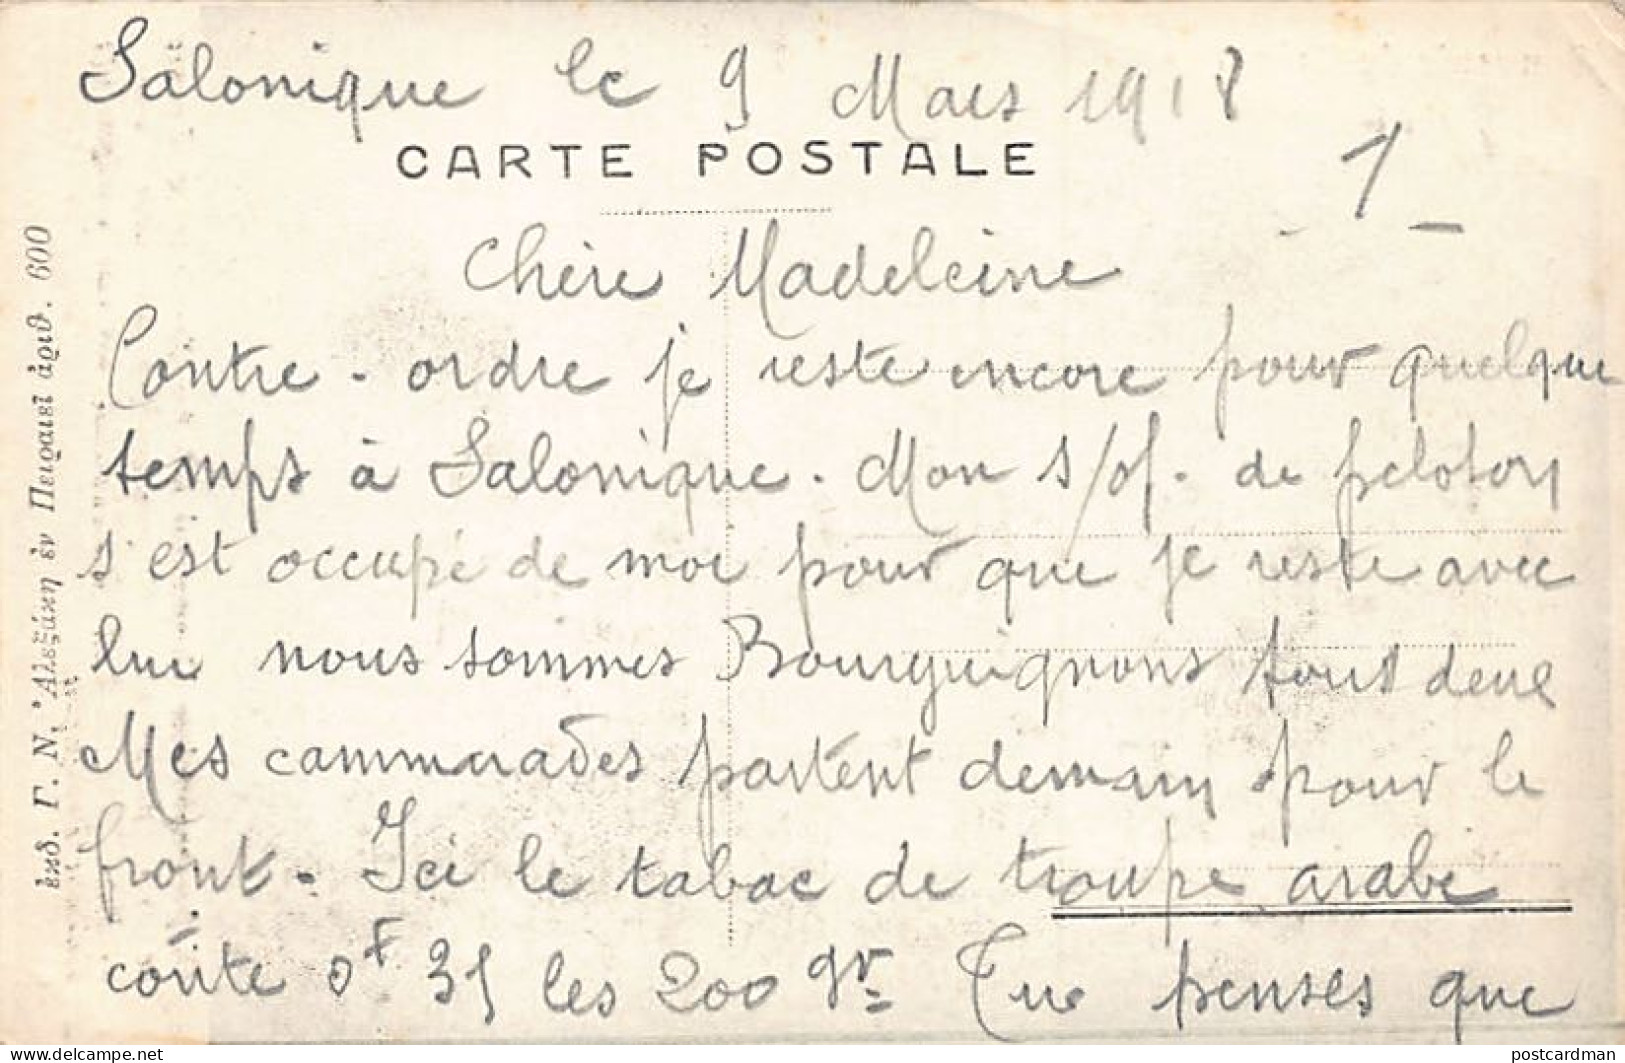 Salonique le 9 Mars 1918
CARTE POSTALE
1
Chère Madeleine
Contre-ordre je reste encore pour quelque
temps à Salonique. Mon s/of. de peloton
s'est occupé de moi pour que je reste avec
lui nous sommes Bourguignons tous deux
Mes cammarades partent demain pour le
front. Ici le tabac de troupe arabe
coûte 0f 35 les 200 gr Tu penses que
ἐκδ. Γ. Ν. Ἀλεξάκη ἐν Πειραιεῖ ἀριθ. 600
postcardman